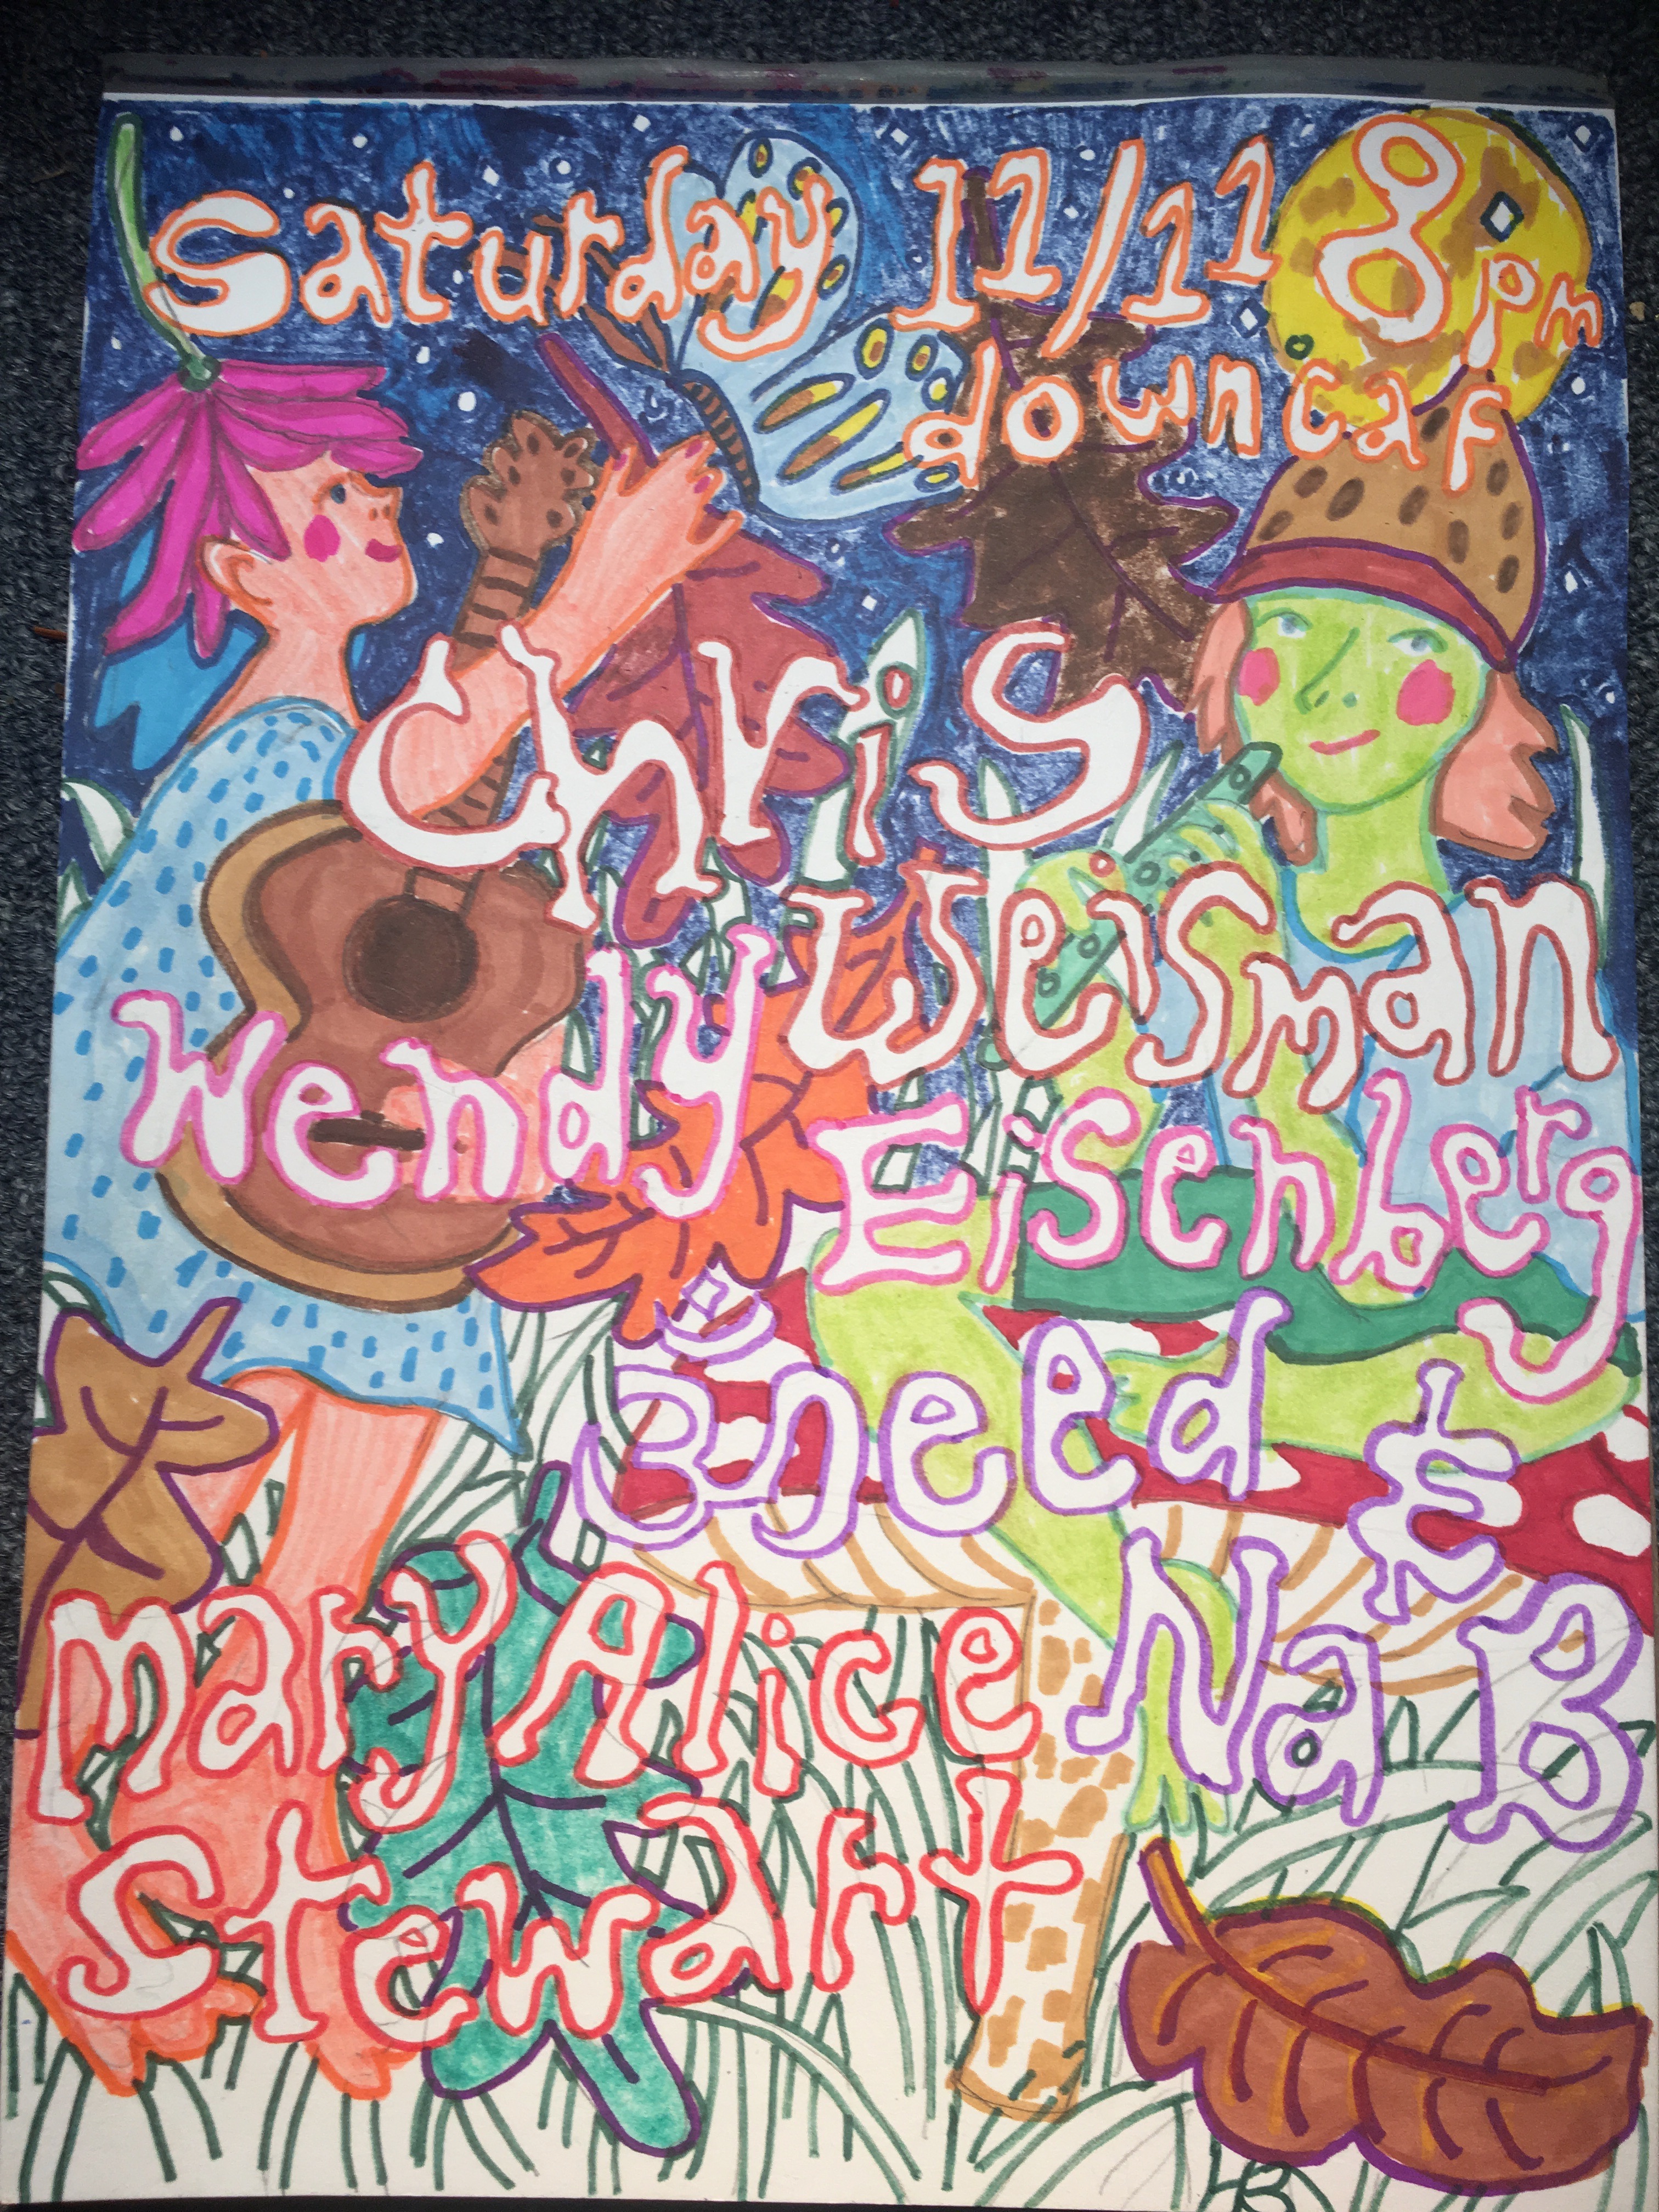 Saturday 11/11 8pm
down caf
Chris
Weisman
Wendy
Eisenberg
ॐeed &
NaB
Mary Alice
Stewart